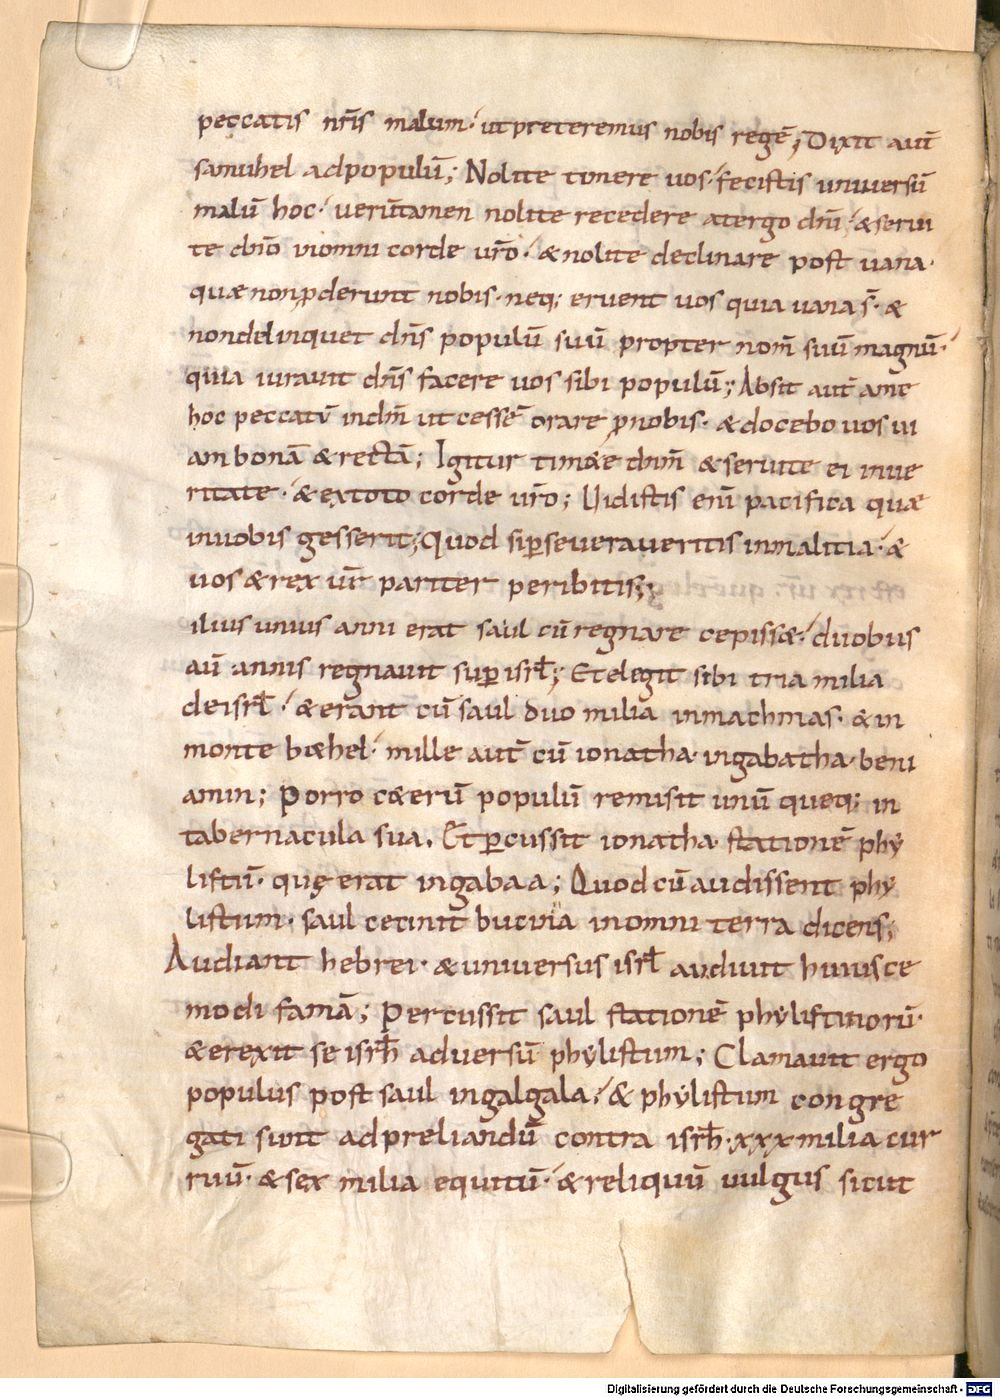 peccatis nr̄is malum· ut preteremus nobis regē; Dixit aut̄
samuhel ad populū; Nolite timere uos· fecistis uniuersū
malū hoc· uerūtamen nolite recedere a tergo dn̄i· & serui
te dn̄o in omni corde ur̄o· & nolite declinare post uana·
quæ non ꝓderunt nobis· neq; eruent uos quia uana s̄· &
non delinquet dn̄s populū suū propter nom̄ suū magnū·
quia iurauit dn̄s facere uos sibi populū; Absit aut̄ a me
hoc peccatū in dn̄m ut cessē orare ꝓ nobis· & docebo uos ui
am bonā & rectā; Igitur tim&e dn̄m & seruite ei in ue
ritate· & ex toto corde ur̄o; Uidistis eni̅ pacifica quæ
in uobis gesserit; Quod si ꝑseueraueritis in malitia· &
uos & rex ur̄ pariter peribitis;
ilius unius anni erat saul cū regnare cepiss&· duobus
aū annis regnauit suꝑ isrl̄; Et elegit sibi tria milia
de isrl̄· & erant cū saul duo milia in machmas· & in
monte b&hel· mille aut̄ cū ionatha· in gabatha· beni
amin; Porro c&erū populū remisit unū quēq; in
tabernacula sua. Et ꝑcussit ionatha stationē phy
listiū· quę erat in gabaa; Quod cū audissent phy
listiim· saul cecinit bucina in omni terra dicens;
Audiant hebrei· & uniuersus isrl̄ audiuit huiusce
modi famā; Percussit saul stationē phylistinorū·
& erexit se isrh̄l aduersū phylistiim; Clamauit ergo
populus post saul in galgala· & phylistiim congre
gati sunt ad preliandū contra isrh̄l· xxx milia cur
ruū· & sex milia equitū· & reliquū uulgus sicut
Digitalisierung gefördert durch die Deutsche Forschungsgemeinschaft - DFG